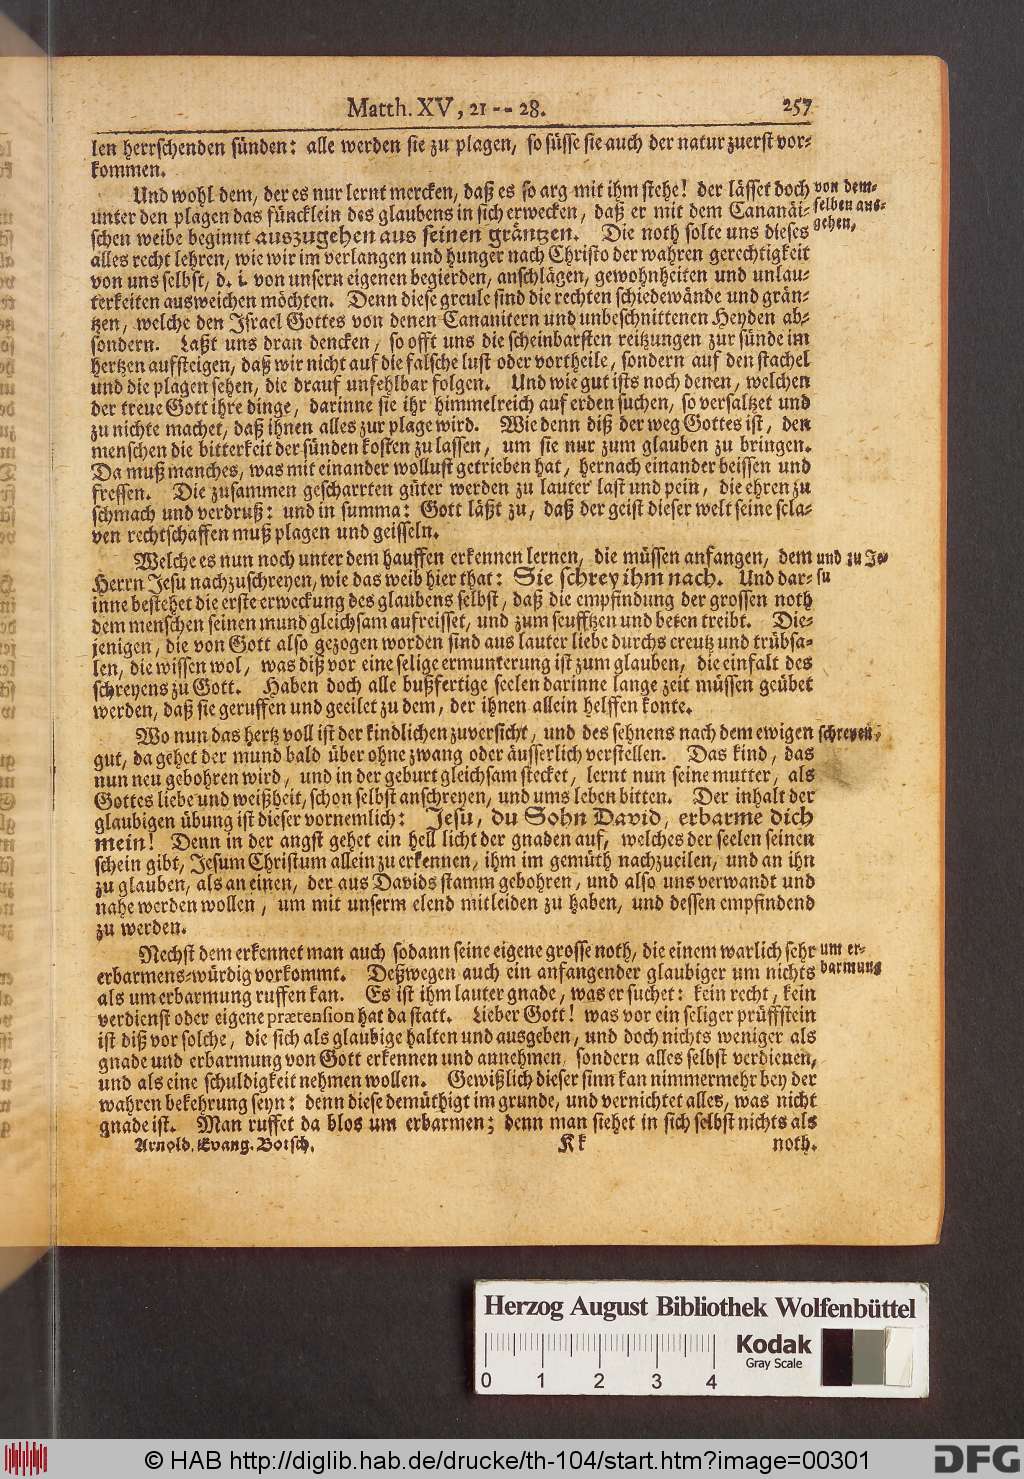 Matth. XV, 21 -- 28. 257
len herrschenden sünden: alle werden sie zu plagen, so süsse sie auch der natur zuerst vor-
kommen.
Und wohl dem, der es nur lernt mercken, daß es so arg mit ihm stehe! der lässet doch
unter den plagen das füncklein des glaubens in sich erwecken, daß er mit dem Cananäi-
schen weibe beginnt auszugehen aus seinen gräntzen. Die noth solte uns dieses
alles recht lehren, wie wir im verlangen und hunger nach Christo der wahren gerechtigkeit
von uns selbst, d. i. von unsern eigenen begierden, anschlägen, gewohnheiten und unlau-
terkeiten ausweichen möchten. Denn diese greule sind die rechten schiedewände und grän-
tzen, welche den Israel Gottes von denen Cananitern und unbeschnittenen Heyden ab-
sondern. Laßt uns dran dencken, so offt uns die scheinbarsten reitzungen zur sünde im
hertzen aufsteigen, daß wir nicht auf die falsche lust oder vortheile, sondern auf den stachel
und die plagen sehen, die drauf unfehlbar folgen. Und wie gut ists noch denen, welchen
der treue Gott ihre dinge, darinne sie ihr himmelreich auf erden suchen, so versaltzet und
zu nichte machet, daß ihnen alles zur plage wird. Wie denn diß der weg Gottes ist, den
menschen die bitterkeit der sünden kosten zu lassen, um sie nur zum glauben zu bringen.
Da muß manches, was mit einander wollust getrieben hat, hernach einander beissen und
fressen. Die zusammen gescharrten güter werden zu lauter last und pein, die ehren zu
schmach und verdruß: und in summa: Gott läßt zu, daß der geist dieser welt seine scla-
ven rechtschaffen muß plagen und geisseln.
von dem-
selben aus-
gehen,
Welche es nun noch unter dem hauffen erkennen lernen, die müssen anfangen, dem
Herrn Jesu nachzuschreyen, wie das weib hier that: Sie schrey ihm nach. Und dar-
inne bestehet die erste erweckung des glaubens selbst, daß die empfindung der grossen noth
dem menschen seinen mund gleichsam aufreisset, und zum seufftzen und beten treibt. Die-
jenigen, die von Gott also gezogen worden sind aus lauter liebe durchs creutz und trübsa-
len, die wissen wol, was diß vor eine selige ermunterung ist zum glauben, die einfalt des
schreyens zu Gott. Haben doch alle bußfertige seelen darinne lange zeit müssen geübet
werden, daß sie geruffen und geeilet zu dem, der ihnen allein helffen konte.
und zu Je-
su
Wo nun das hertz voll ist der kindlichen zuversicht, und des sehnens nach dem ewigen
gut, da gehet der mund bald über ohne zwang oder äusserlich verstellen. Das kind, das
nun neu gebohren wird, und in der geburt gleichsam stecket, lernt nun seine mutter, als
Gottes liebe und weißheit, schon selbst anschreyen, und ums leben bitten. Der inhalt der
glaubigen übung ist dieser vornemlich: Jesu, du Sohn David, erbarme dich
mein! Denn in der angst gehet ein hell licht der gnaden auf, welches der seelen seinen
schein gibt, Jesum Christum allein zu erkennen, ihm im gemüth nachzueilen, und an ihn
zu glauben, als an einen, der aus Davids stamm gebohren, und also uns verwandt und
nahe werden wollen, um mit unserm elend mitleiden zu haben, und dessen empfindend
zu werden.
schreyen,
Nechst dem erkennet man auch sodann seine eigene grosse noth, die einem warlich sehr
erbarmens-würdig vorkommt. Deßwegen auch ein anfangender glaubiger um nichts
als um erbarmung ruffen kan. Es ist ihm lauter gnade, was er suchet: kein recht, kein
verdienst oder eigene prætension hat da statt. Lieber Gott! was vor ein seliger prüffstein
ist diß vor solche, die sich als glaubige halten und ausgeben, und doch nichts weniger als
gnade und erbarmung von Gott erkennen und annehmen, sondern alles selbst verdienen,
und als eine schuldigkeit nehmen wollen. Gewißlich dieser sinn kan nimmermehr bey der
wahren bekehrung seyn: denn diese demüthigt im grunde, und vernichtet alles, was nicht
gnade ist. Man ruffet da blos um erbarmen; denn man siehet in sich selbst nichts als
um er-
barmung
Arnold. Evang. Botsch. Kk noth.
Herzog August Bibliothek Wolfenbüttel
Kodak
Gray Scale
0 1 2 3 4
© HAB http://diglib.hab.de/drucke/th-104/start.htm?image=00301
DFG